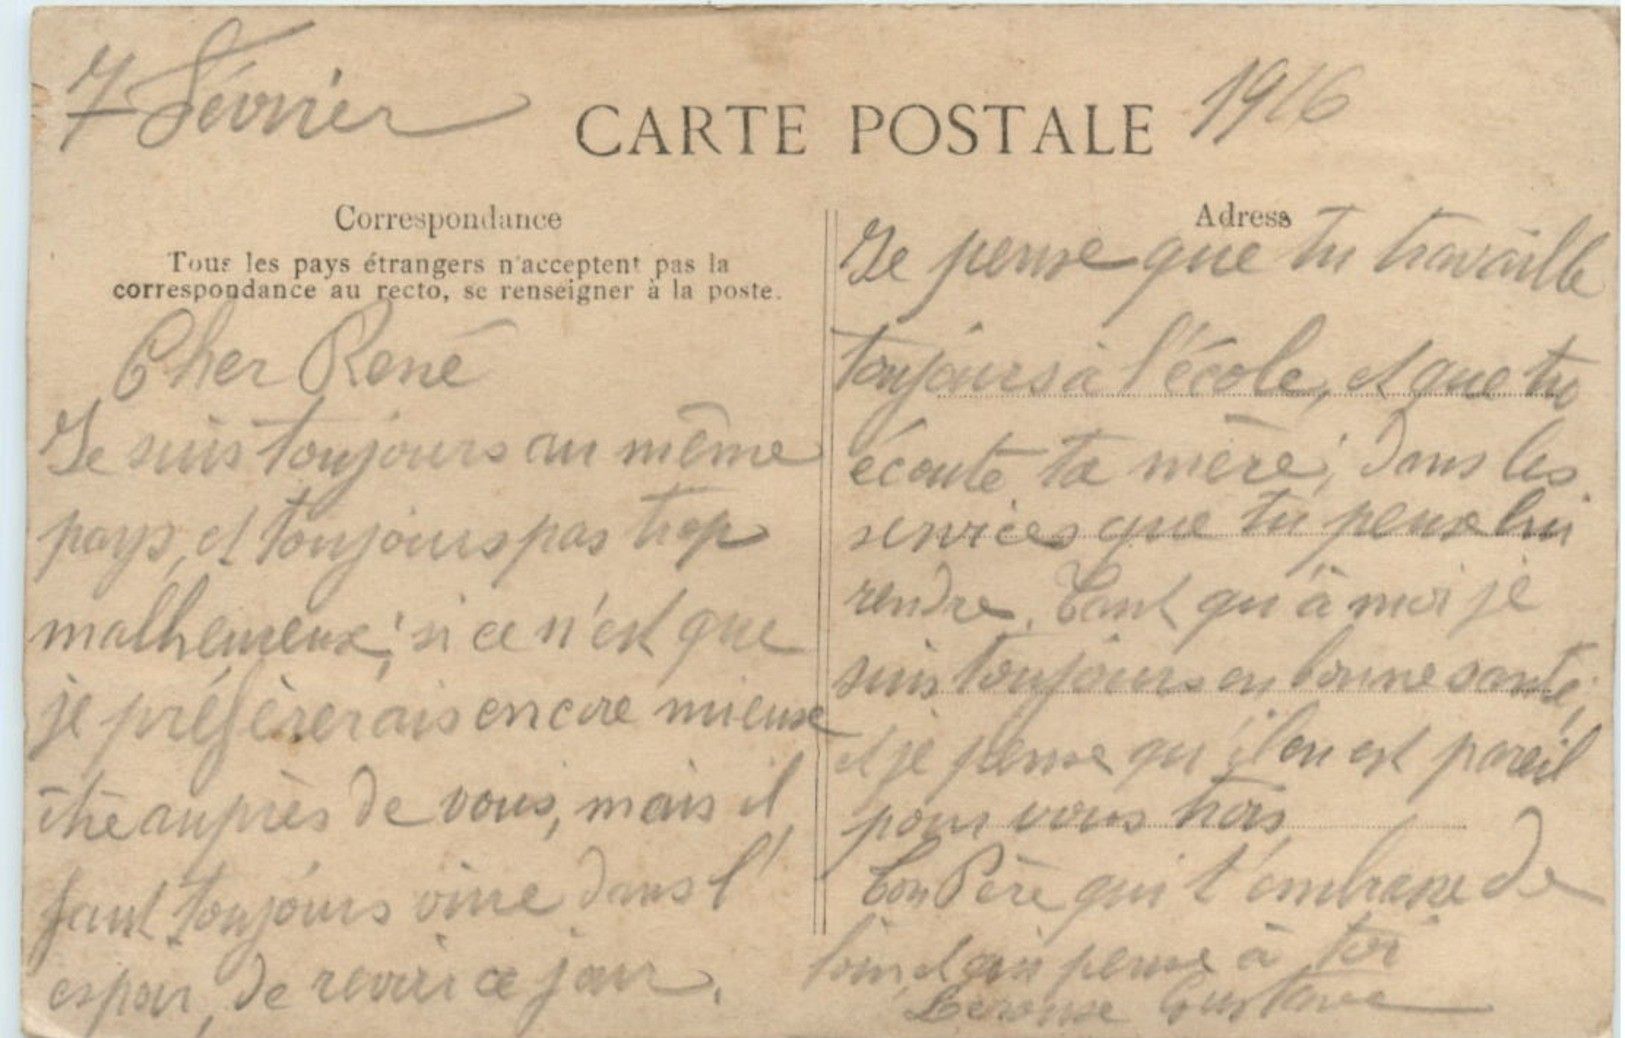 7 Février
CARTE POSTALE
1916
Correspondance
Tous les pays étrangers n'acceptent pas la
correspondance au recto, se renseigner à la poste.
Cher René
Je suis toujours au même
pays, et toujours pas trop
malheureux; si ce n'est que
je préfèrerais encore mieux
être auprès de vous, mais il
faut toujours vivre dans l'
espoir, de revoir ce jour.
Adress
Je pense que tu travaille
toujours à l'école, et que tu
écoute ta mère; dans les
services que tu peux lui
rendre. Tant qu'à moi je
suis toujours en bonne santé,
et je pense qu'il en est pareil
pour vous trois
Ton Père qui t'embrasse de
loin, et qui pense à toi
Gustave